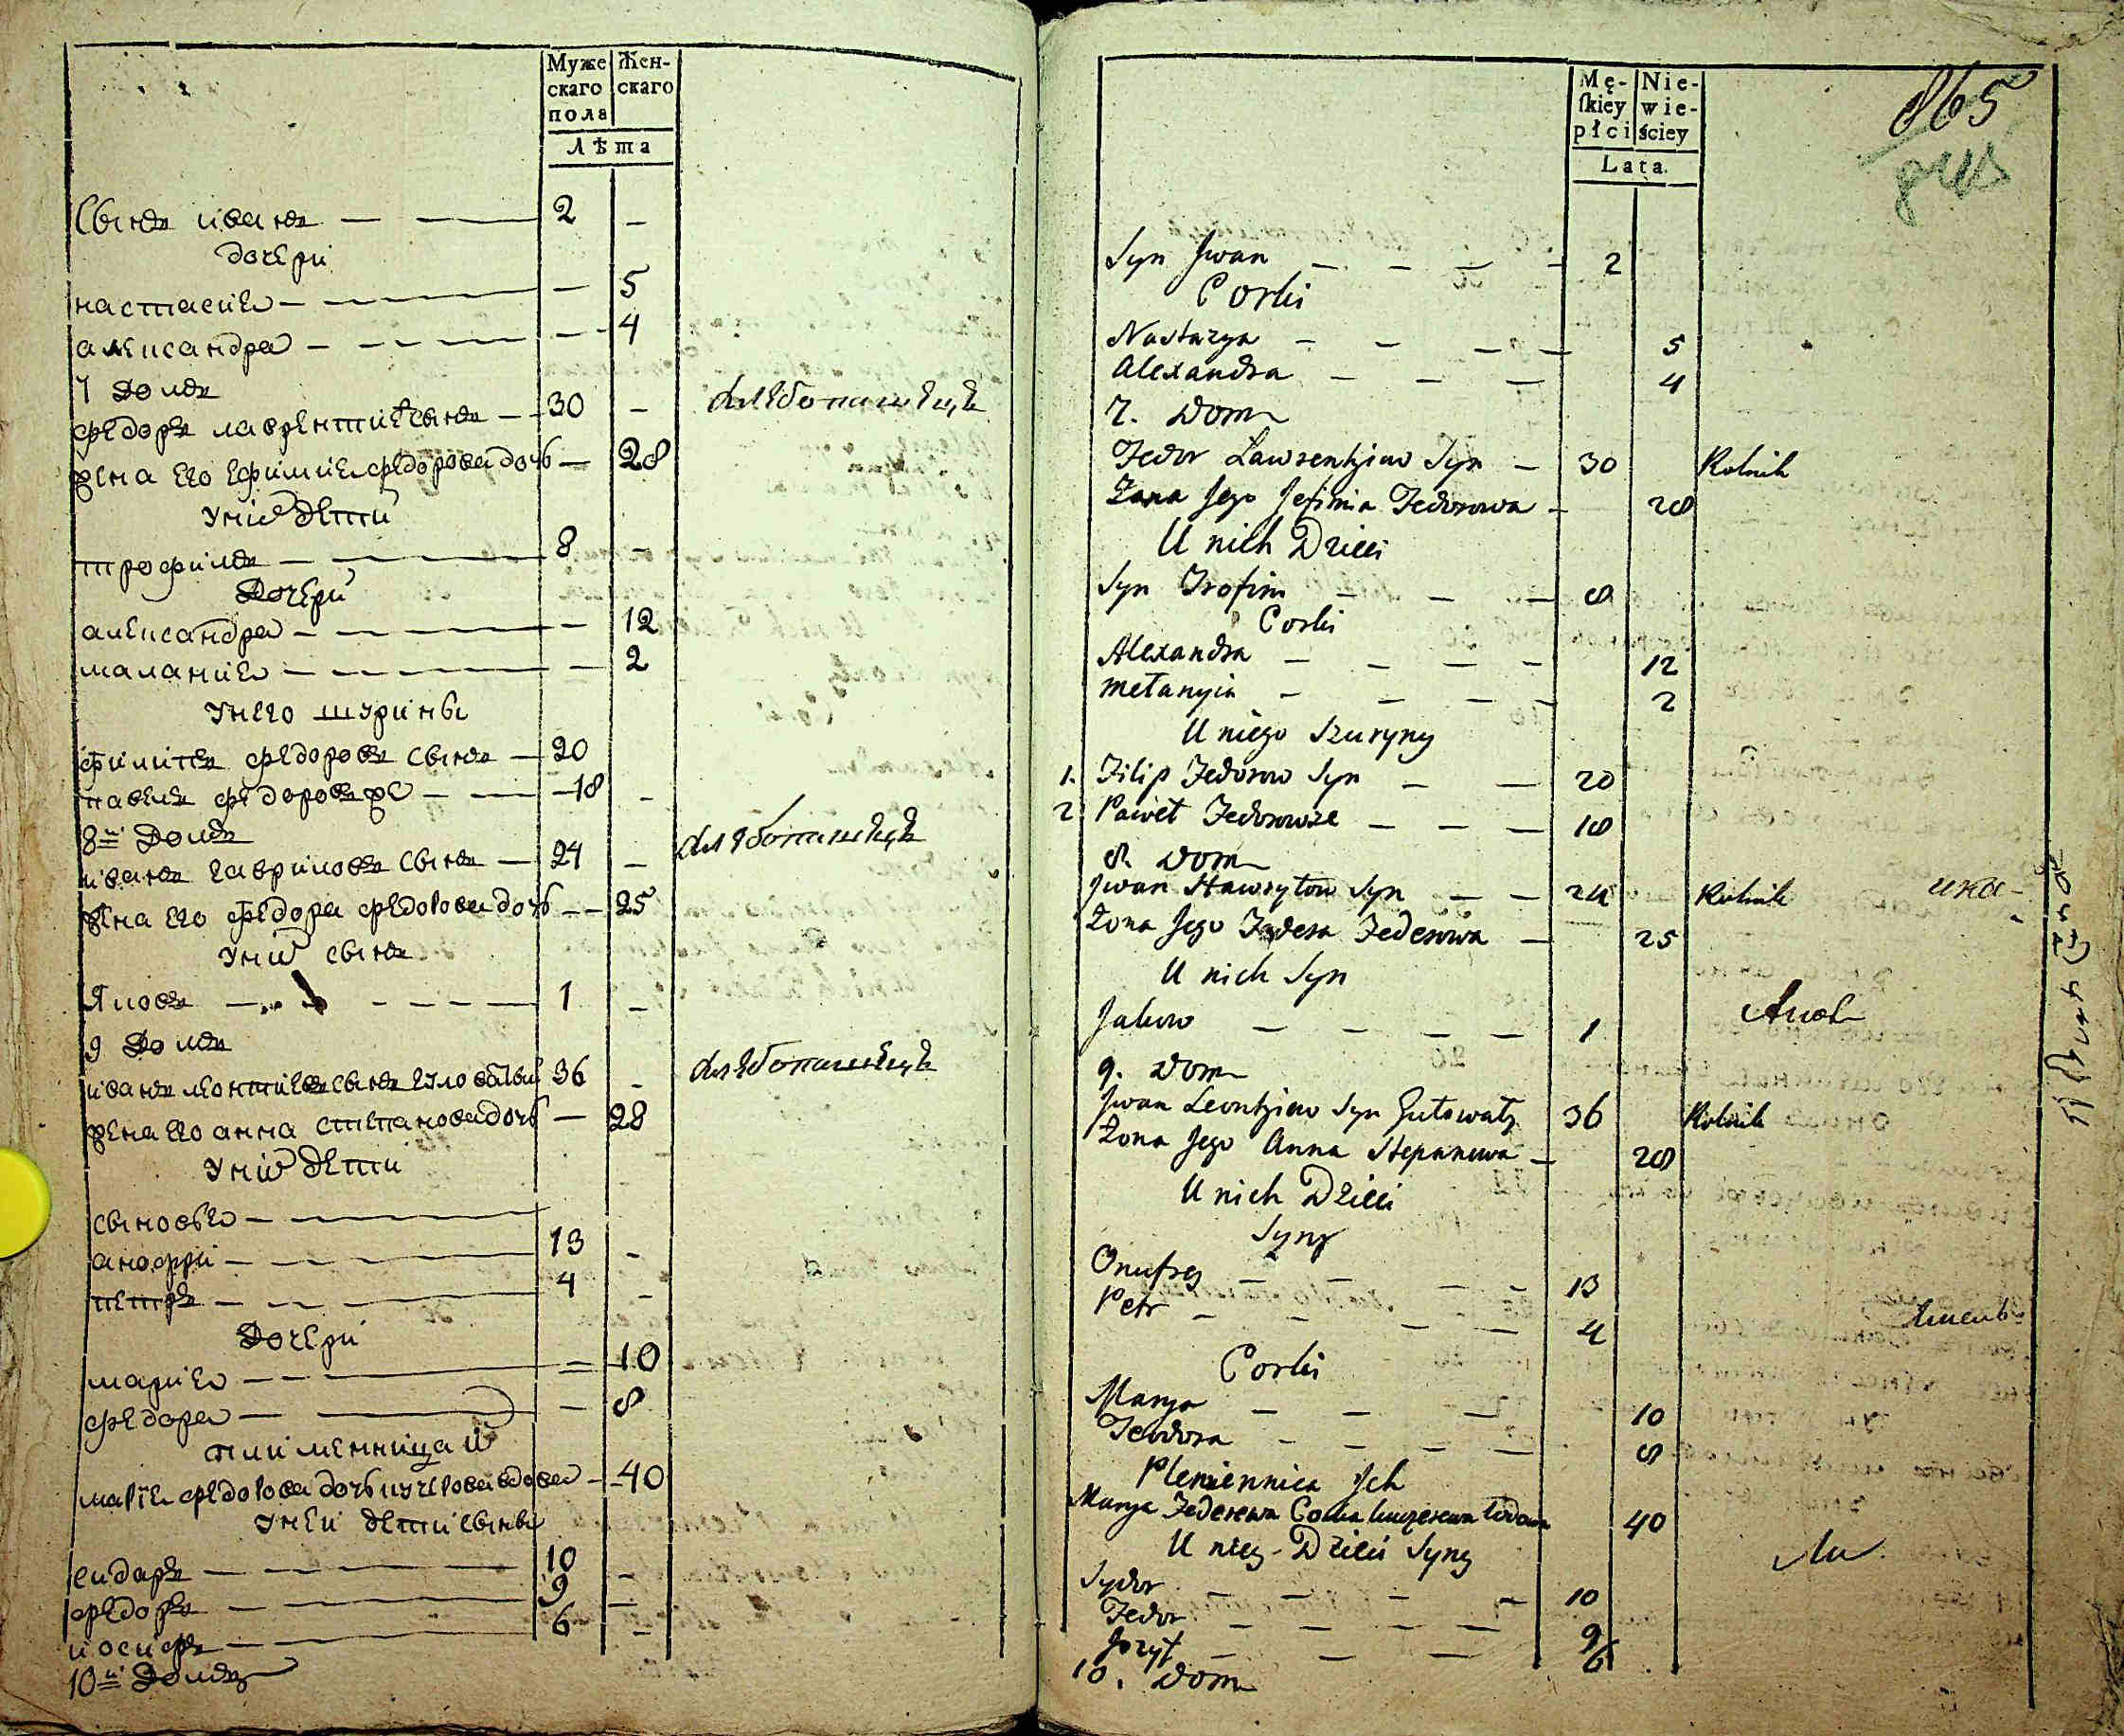 Муже
скаго
пола
Жен-
скаго
Лѣта
Сынъ иванъ 2 –
дочери
настасия – 5
александра – 4
7 Домъ
федоръ лаврентиевъ сынъ 30 – хлѣбопашецъ
жена его ефимия федорова дочь – 28
у них дети
трофимъ 8 –
Дочери
александра – 12
малания – 2
у него шурины
филипъ федоровъ сынъ 20
павелъ федоровъ же 18 –
8й Домъ
иванъ гавриловъ сынъ 24 – хлѣбопашецъ
жена его федора федорова дочь – 25
у них сынъ
Яковъ 1 –
9 Домъ
иванъ леонтиевъ сынъ 36 – хлѣбопашецъ
жена его анна степанова дочь – 28
у них дети
сыновья
анофри 13 –
петръ 4 –
Дочери
мария – 10
федора – 8
племенница их
мария федорова дочь вдова – 40
у ней дети сыны
сидоръ 10 –
федоръ 9 –
иосифъ 6 –
10й Домъ
865
Mę-
ſkiey
płci
Nie-
wie-
ściey
Lata.
Syn Jwan 2
Corki
Nastazya 5
Alexandra 4
7. Dom
Fedor Lawrentjew Syn 30 Rolnik
Żona Jego Jefimia Fedorowa 28
U nich Dzieci
Syn Trofim 8
Corki
Alexandra 12
Mełanyia 2
U niego Szuryny
1. Filip Fedorow Syn 20
2 Paweł Fedorowże 18
8. Dom
Jwan Hawryłow Syn 24 Rolnik
Żona Jego Fedora Fedorowa 25
U nich Syn
Jakow 1
9. Dom
Jwan Leontjew Syn 36 Rolnik
Żona Jego Anna Stepanowa 28
U nich Dzieci
Syny
Onufry 13
Petr 4
Corki
Marya 10
Teodora 8
Plemiennica Jch
Marya Fedorowa Corka Wdowa 40
U niey Dzieci Syny
Sydor 10
Fedor 9
Jozyf 6
10. Dom